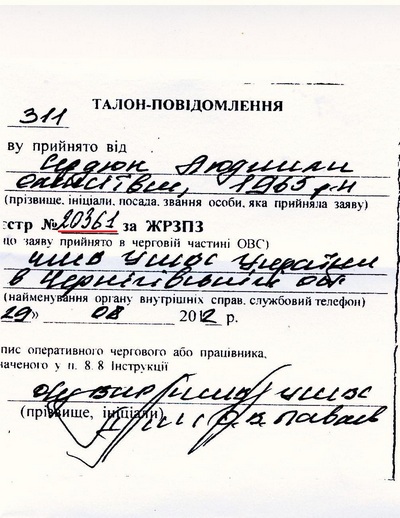 ТАЛОН-ПОВІДОМЛЕННЯ
311
ву прийнято від
Сердюк Людмили
1965 р.н
(прізвище, ініціали, посада, звання особи, яка прийняла заяву)
єстр №20361 за ЖРЗПЗ
що заяву прийнято в черговій частині ОВС)
УМВ УМВС України
в Чернігівській обл
(найменування органу внутрішніх справ, службовий телефон)
29» 08 2012 р.
пис оперативного чергового або працівника,
наченого у п. 8.8 Інструкції
УМВС
(прізвище, ініціали)